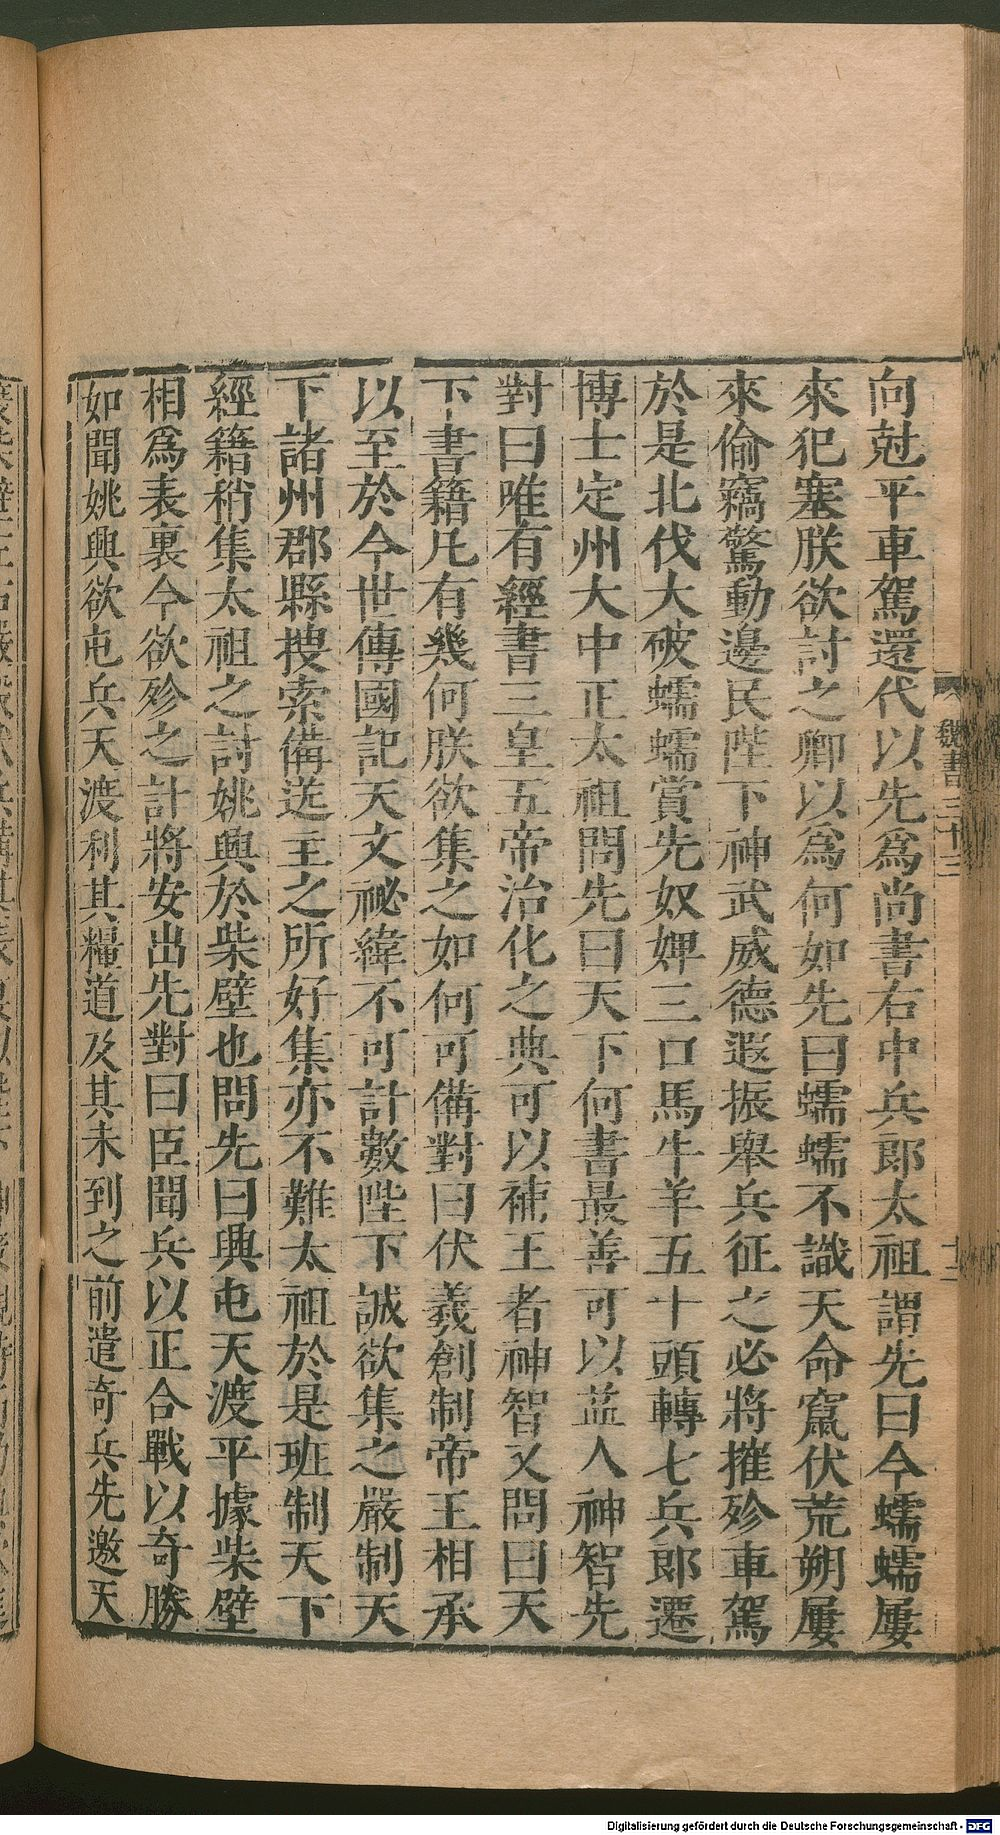 向尅平車駕還代以先爲尚書右中兵郎太祖謂先曰今蠕蠕屢
來犯塞朕欲討之卿以爲何如先曰蠕蠕不識天命竄伏荒朔屢
來偷竊驚動邊民陛下神武威德遐振舉兵征之必將摧殄車駕
於是北伐大破蠕蠕賞先奴婢三口馬牛羊五十頭轉七兵郎遷
博士定州大中正太祖問先曰天下何書最善可以益人神智先
對曰唯有經書三皇五帝治化之典可以補王者神智又問曰天
下書籍凡有幾何朕欲集之如何可備對曰伏羲創制帝王相承
以至於今世傳國記天文祕緯不可計數陛下誠欲集之嚴制天
下諸州郡縣搜索備送主之所好集亦不難太祖於是班制天下
經籍稍集太祖之討姚興於柴壁也問先曰興屯天渡平據柴壁
相爲表裏今欲殄之計將安出先對曰臣聞兵以正合戰以奇勝
如聞姚興欲屯兵天渡利其糧道及其未到之前遣奇兵先邀天
魏書三十三
十二
Digitalisierung gefördert durch die Deutsche Forschungsgemeinschaft - DFG